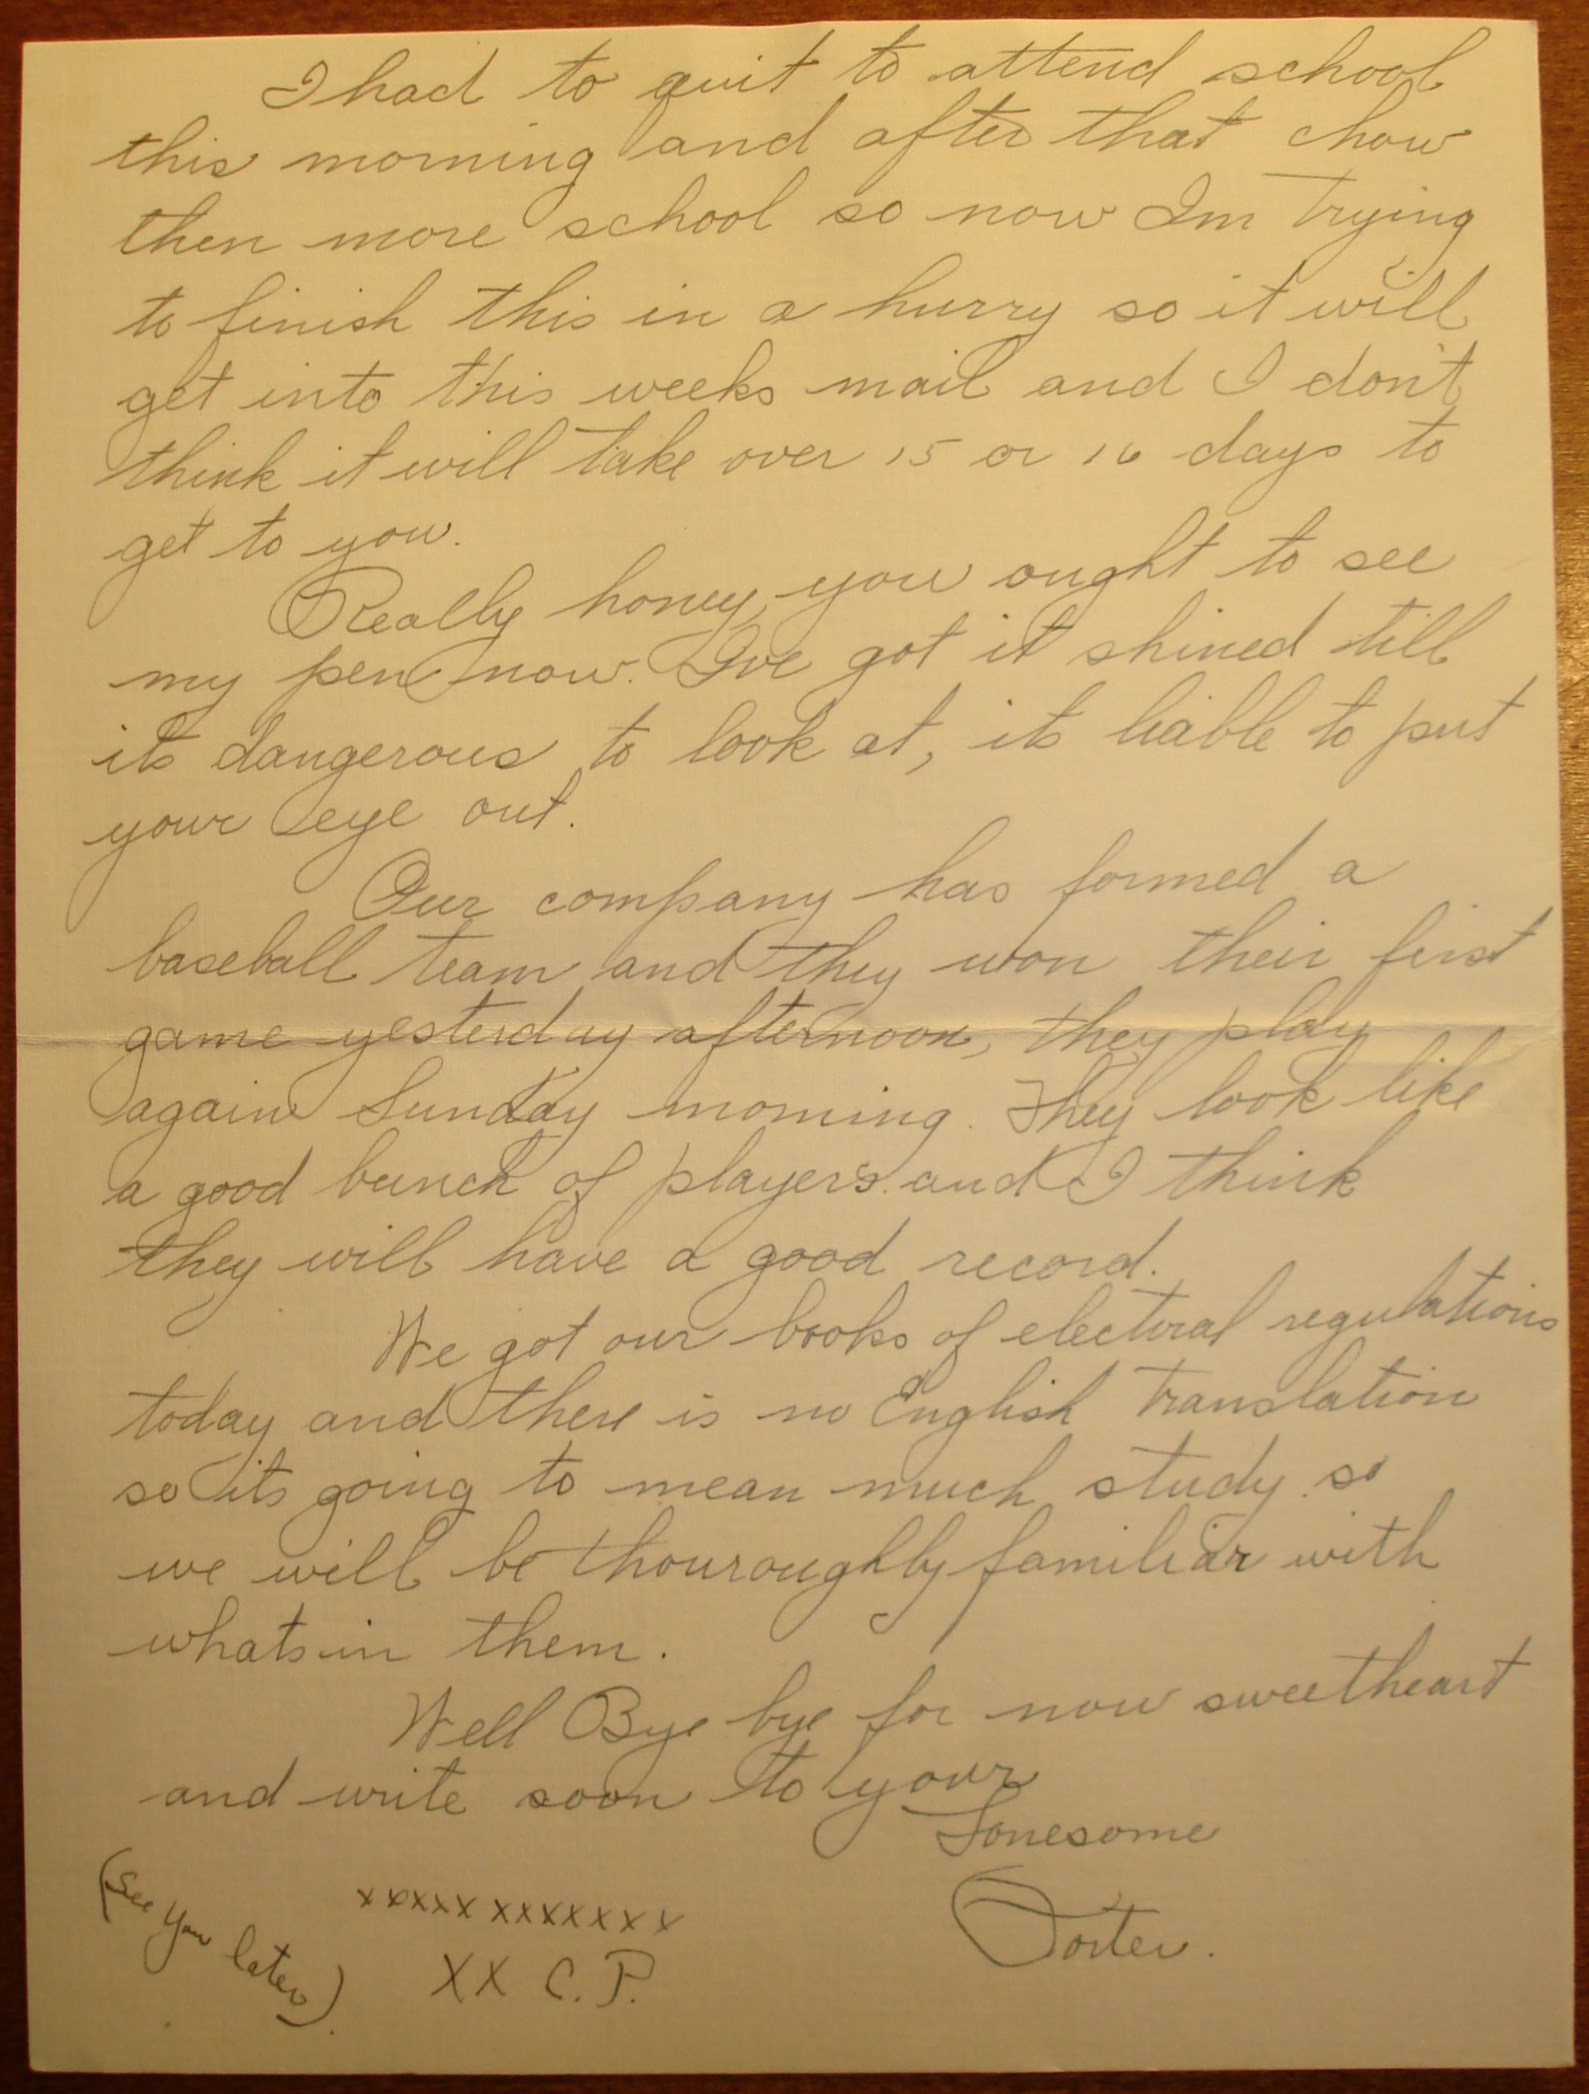 I had to quit to attend school
this morning and after that chow
then more school so now Im trying
to finish this in a hurry so it will
get into this weeks mail and I don't
think it will take over 15 or 16 days to
get to you.
Really honey, you ought to see
my pen now. Ive got it shined till
its dangerous to look at, its liable to put
your eye out.
Our company has formed a
baseball team and they won their first
game yesterday afternoon, they play
again Sunday morning. They look like
a good bunch of players and I think
they will have a good record.
We got our books of electoral regulations
today and there is no English translation
so its going to mean much study so
we will be thouroughly familiar with
whats in them.
Well Bye bye for now sweetheart
and write soon to your
Lonesome
Porter.
(See you later)
xxxxx xxxxxxx
XX C.P.